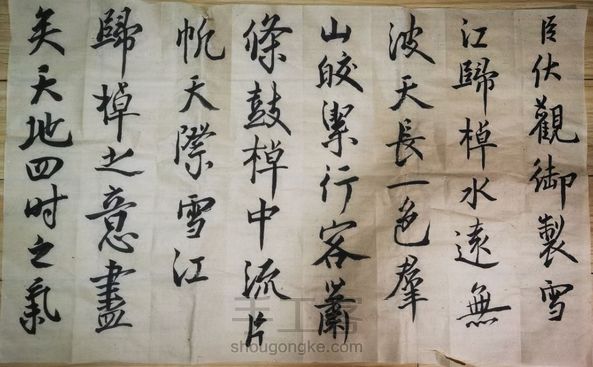 臣伏觀御製雪
江歸棹水遠無
波天長一色羣
山皎潔行客蕭
條鼓棹中流片
帆天際雪江
歸棹之意盡
矣天地四时之氣
手工客
shougongke.com